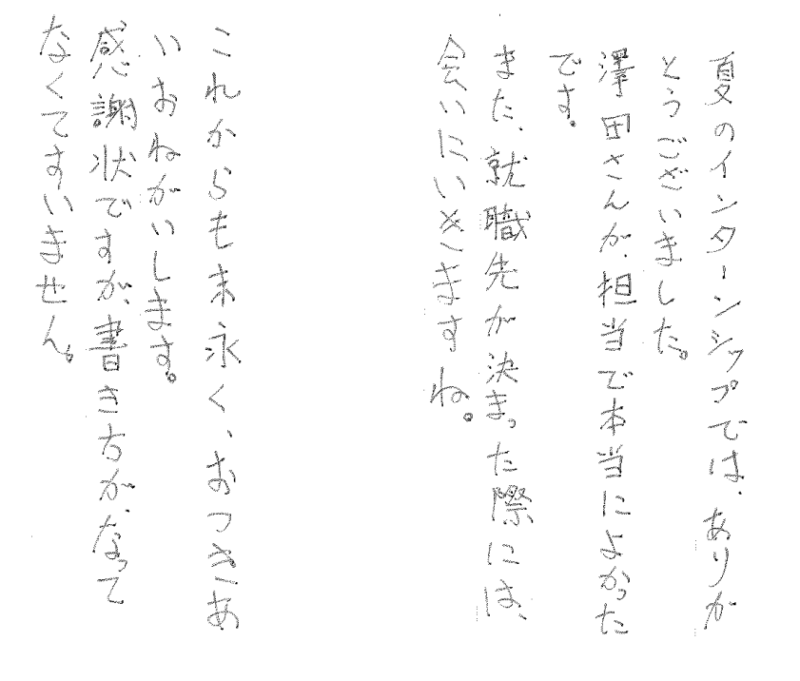 夏のインターンシップでは、ありが
とうございました。
澤田さんが、担当で本当によかった
です。
また、就職先が決まった際には、
会いにいきますね。
これからも末永く、おつきあ
いおねがいします。
感謝状ですが、書き方が、なって
なくてすいません。